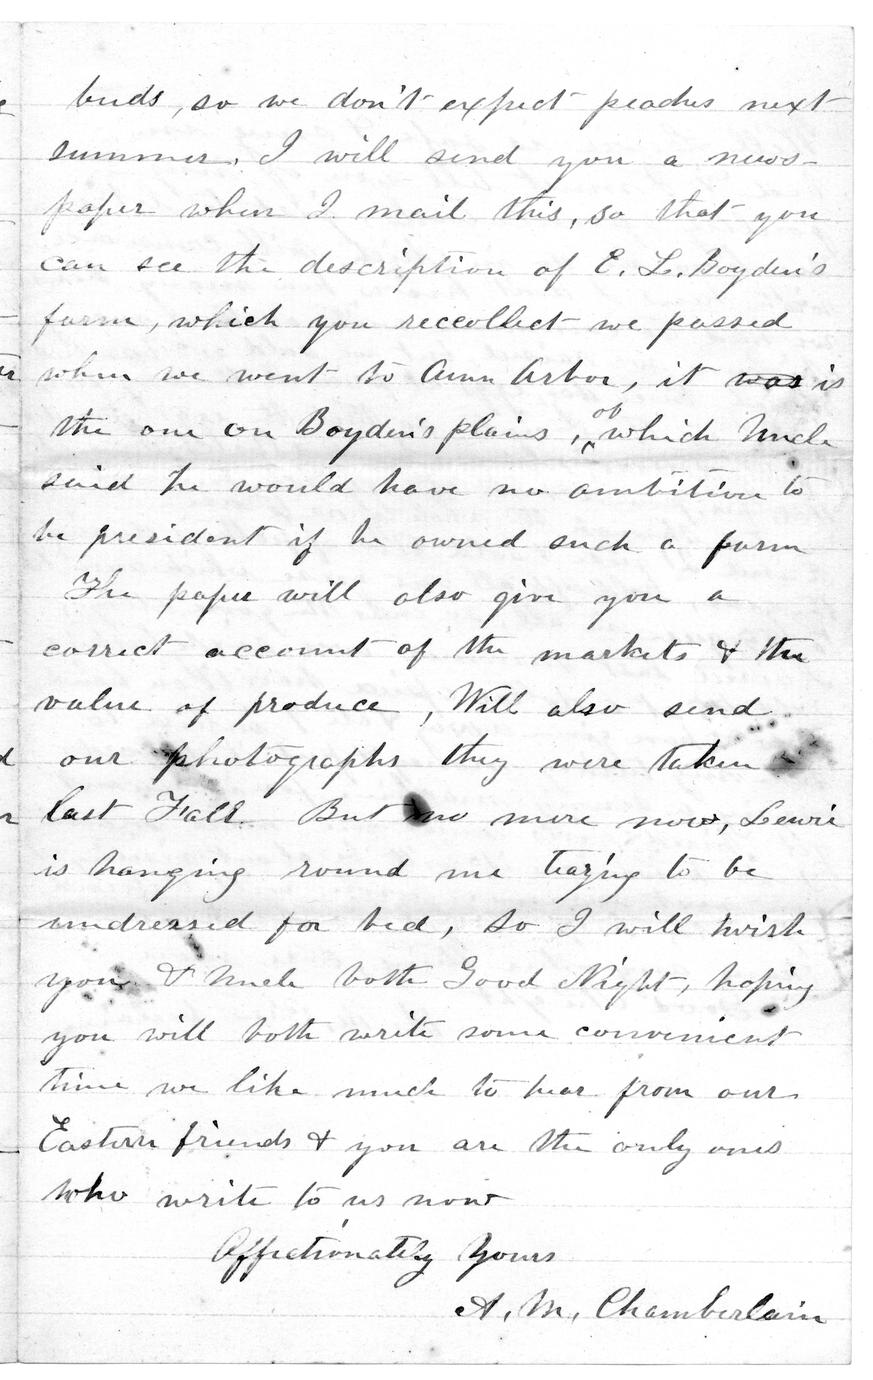 buds, so we don't expect peaches next
summer. I will send you a news-
paper when I mail this, so that you
can see the description of E. L. Boyden's
farm, which you reccollect we passed
when we went to Ann Arbor, it was is
the one on Boyden's plains, of which Uncle
said he would have no ambition to
be president if he owned such a farm
The paper will also give you a
correct account of the markets & the
value of produce, Will also send
our photographs they were taken
last Fall. But no more now, Lewie
is hanging round me teazing to be
undressed for bed, so I will wish
you & Uncle both Good Night, hoping
you will both write some convenient
time we like much to hear from our
Eastern friends & you are the only ones
who write to us now
Affectionately Yours
A. M. Chamberlain